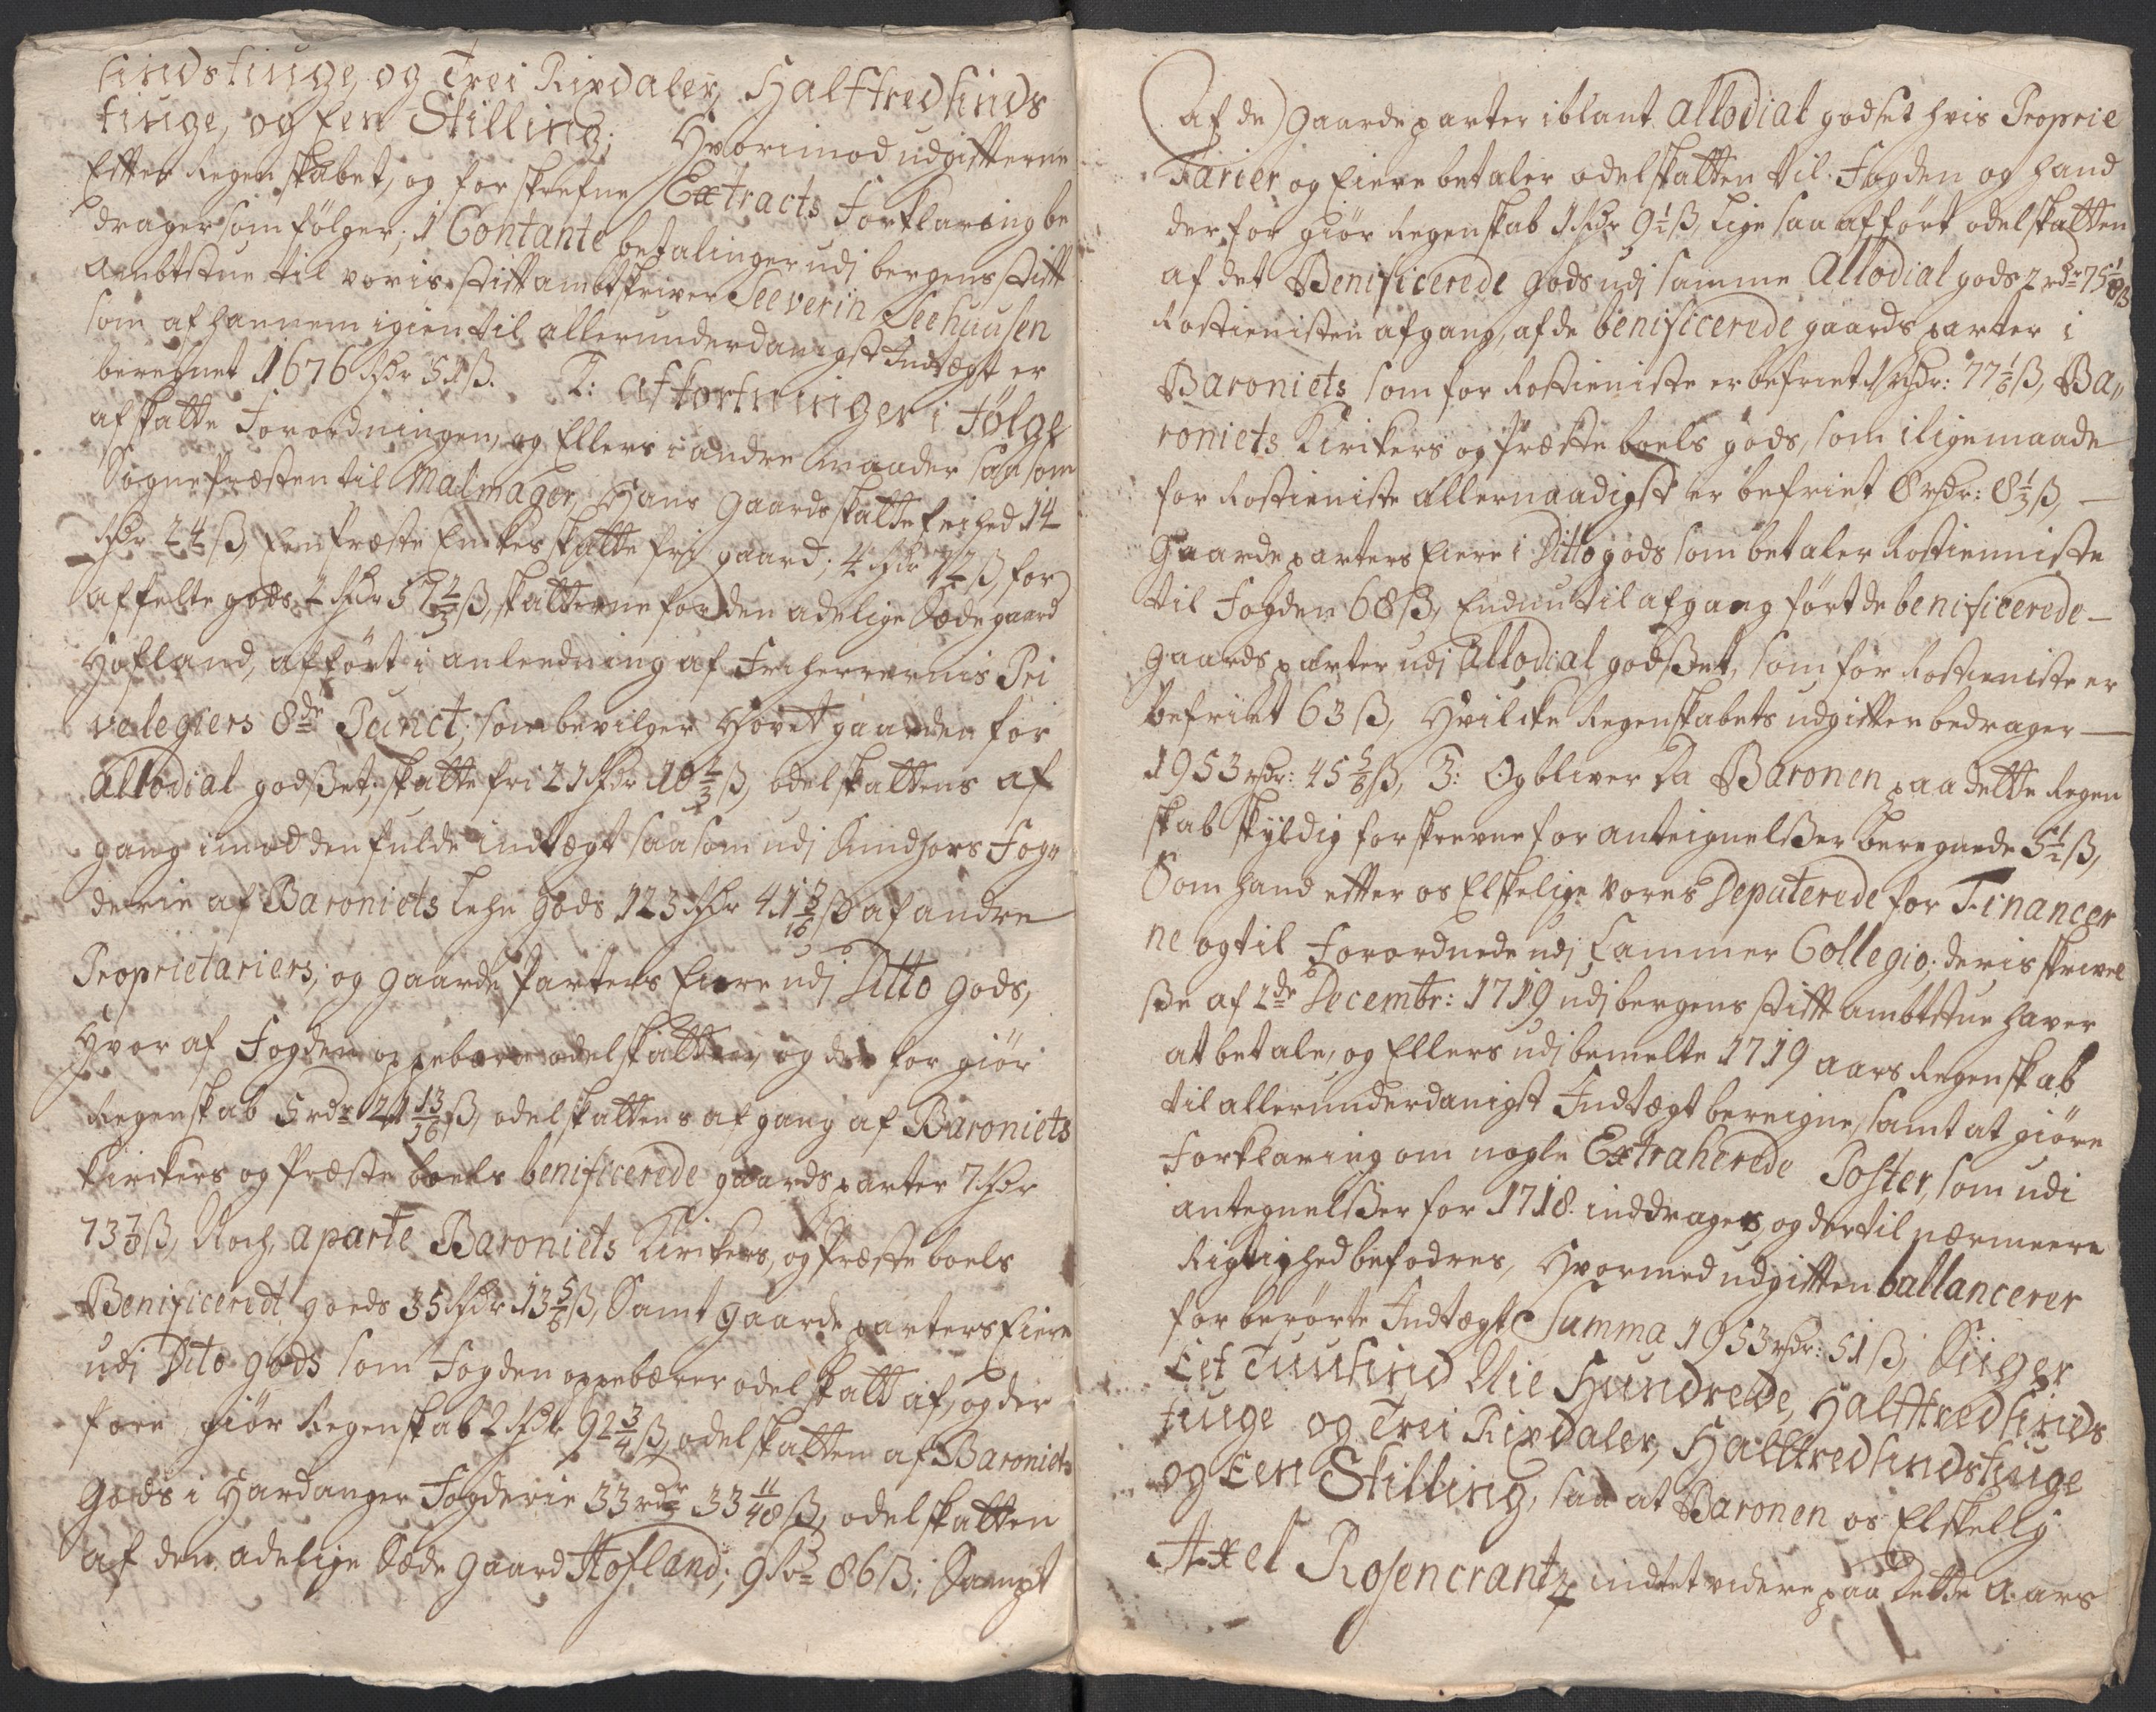 sindstiuge, og Trei Rixdaler, Halftredsinds
tiuge, og Een Skilling; Hvorimod udgifterne
Efter Regenskabet, og forskrefne Extracts Forklaring be
drager som følger; 1 Contante betalinger udj bergens stift
Ambtstue til voris stiftambtskriver Seeverin Seehuusen
som af hannem igien til allerunderdanigst Indtægt er
beregnet 1676 Rdr 51 ß. 2: Afkortninger i følge
af skatte Forordningen, og Ellers i andre maader saasom
Sogne Præsten til Malmager, Hans Gaards skatte frihed 14
Rdr 24 ß, Een Præste Enkes skatte fri gaard; 4 Rdr 72 ß, for
affelte gods 2 Rdr 57 2/3 ß, skatterne for den adelige Sæde gaard
Hofland, affört i anleedning af Friherrernis Pri
velegiers 8de Punct; som bevilger Hovet gaarden for
Allodial godsset, skatte fri 21 Rdr 10 2/3 ß, odelskattens af
gang imod den fulde indtægt saasom udj Sundhors Fog
derie af Baroniets Lehn Gods 123 Rdr 41 3/16 ß af andre
Proprietariers; og Gaarde Parters Eiere udj Ditto Gods,
Hvor af Fogden oppebærer odelskatten, og der for giör
Regenskab 5 rdr 21 13/16 ß, odelskattens afgang af Baroniets
Kirikers og Præste boels benificerede gaards parter 7 Rdr
73 7/8 ß, Noch, aparte Baroniets Kirikers, og Præste boels
Benificeredt goeds 35 Rdr 13 5/8 ß, Samt Gaarde parters Eiere
udj Dito gods som Fogden oppebærer odel skatt af, og der
fore, giör Regenskab 2 Rdr 92 3/4 ß, odelskatten af Baroniets
Gods i Hardanger Fogderie 33 rdr 33 11/48 ß, odelskatten
af den adelige Sæde Gaard Hofland; 9 Rdr 86 ß; Sampt
(af de) Gaarde parter iblant Allodial godset hvis Proprie
Tarier og Eiere betaler odelskatten til Fogden og hand
derfor giör Regenskab 1 Rdr 9 1/2 ß, lige saa afført odelskatten
af det Benificerede Gods udj samme Allodial gods 2 rdr 75 1/8 ß
Rostienisten afgang, af de benificerede gaards parter i
Baroniets som for Rostieniste er befriet 1 Rdr: 77 1/6 ß, Ba„
roniets Kirikers og Præste boels gods, som i lige maade
for Rostieniste allernaadigst er befriet 8 rdr: 8 1/3 ß, —
Gaarde parters Eiere i Ditto gods som betaler Rostienniste
til Fogden 68 ß, Endnu til afgang fört de benificerede —
gaards parter udj Allodial godsset, som for Rostieniste er
befriet 63 ß, Hvilcke Regenskabets udgifter bedrager —
1953 rdr: 45 5/6 ß, 3: Og bliver Da Baronen paa dette Regen
skab skyldig forskrevne for anteignelsser beregnede 5 1/2 ß,
Som hand efter os Elskelige Vores Deputerede for Financer
ne og til Forordnede udj Cammer Collegio; deris skrivel
sse af 2de Decembr: 1719 udj bergens stift ambtstue haver
at betale, og Ellers udj bemelte 1719 aars Regenskab
til allerunderdanigst Indtægt bereigne, samt at giöre
Forklaring om nogle Extraherede Poster, som udi
antegnelsser for 1718. inddrages, og dertil nærmeere
Rigtighed befodres, Hvormed udgiften ballancerer
for berörte Indtægt Summa 1953 rdr: 51 ß, Siiger
Eet Tuusind Nie Hundrede, Halftredsinds
tiuge og Trei Rixdaler, Halftredsindstiuge
og Een Skilling, saa at Baronen os Elskelig
Axel Rosencrantz indtet videre paa Dette Aars